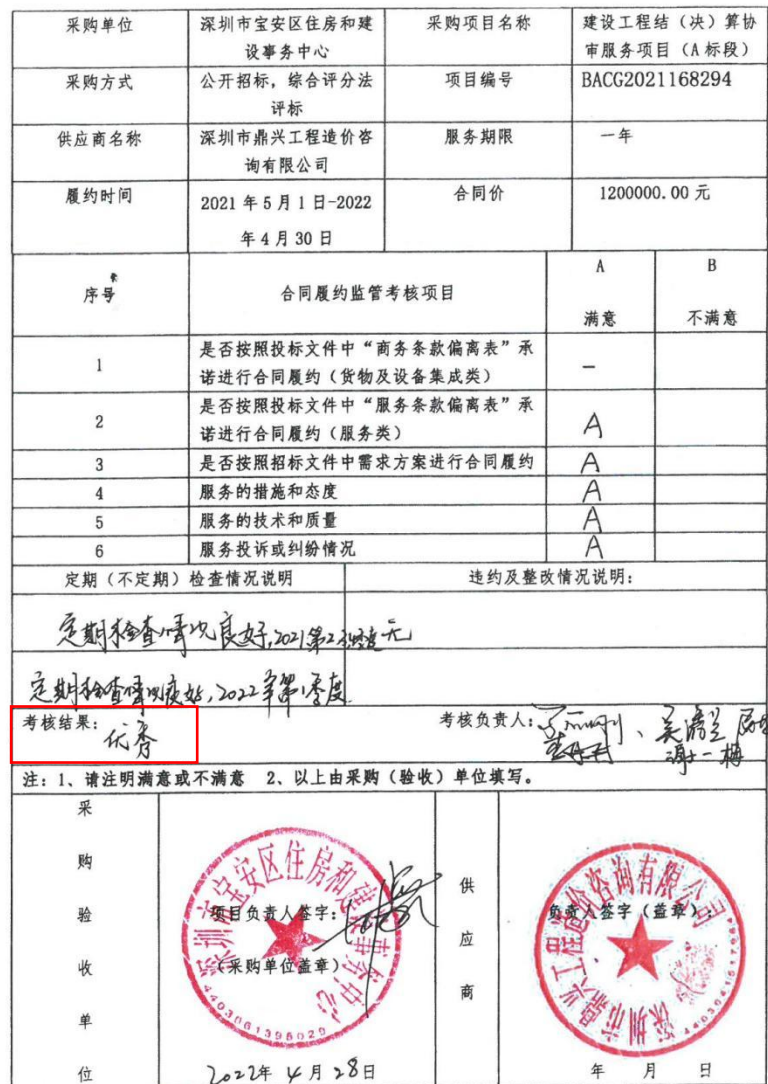 采购单位 深圳市宝安区住房和建 采购项目名称 建设工程结（决）算协
设事务中心 审服务项目（A标段）
采购方式 公开招标，综合评分法 项目编号 BACG2021168294
评标
供应商名称 深圳市鼎兴工程造价咨 服务期限 一年
询有限公司
履约时间 2021年5月1日-2022 合同价 1200000.00元
年4月30日
序号 合同履约监管考核项目 A B
满意 不满意
1 是否按照投标文件中“商务条款偏离表”承 —
诺进行合同履约（货物及设备集成类）
2 是否按照投标文件中“服务条款偏离表”承 A
诺进行合同履约（服务类）
3 是否按照招标文件中需求方案进行合同履约 A
4 服务的措施和态度 A
5 服务的技术和质量 A
6 服务投诉或纠纷情况 A
定期（不定期）检查情况说明 违约及整改情况说明：
定期检查情况良好,2021第2 无
定期检查情况良好,2022年第1季度
考核结果： 优秀 考核负责人：
注：1、请注明满意或不满意 2、以上由采购（验收）单位填写。
采购验收单位
项目负责人签字：
（采购单位盖章）
深圳市宝安区住房和建设事务中心
4403061395029
2022年4月28日
供应商
负责人签字（盖章）：
深圳市鼎兴工程造价咨询有限公司
年 月 日